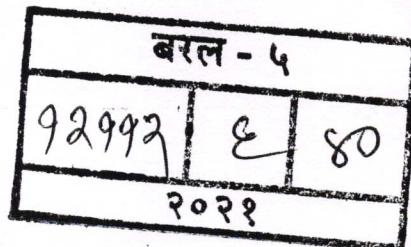 बरल - ५
१२११२ ६ ४०
२०२१